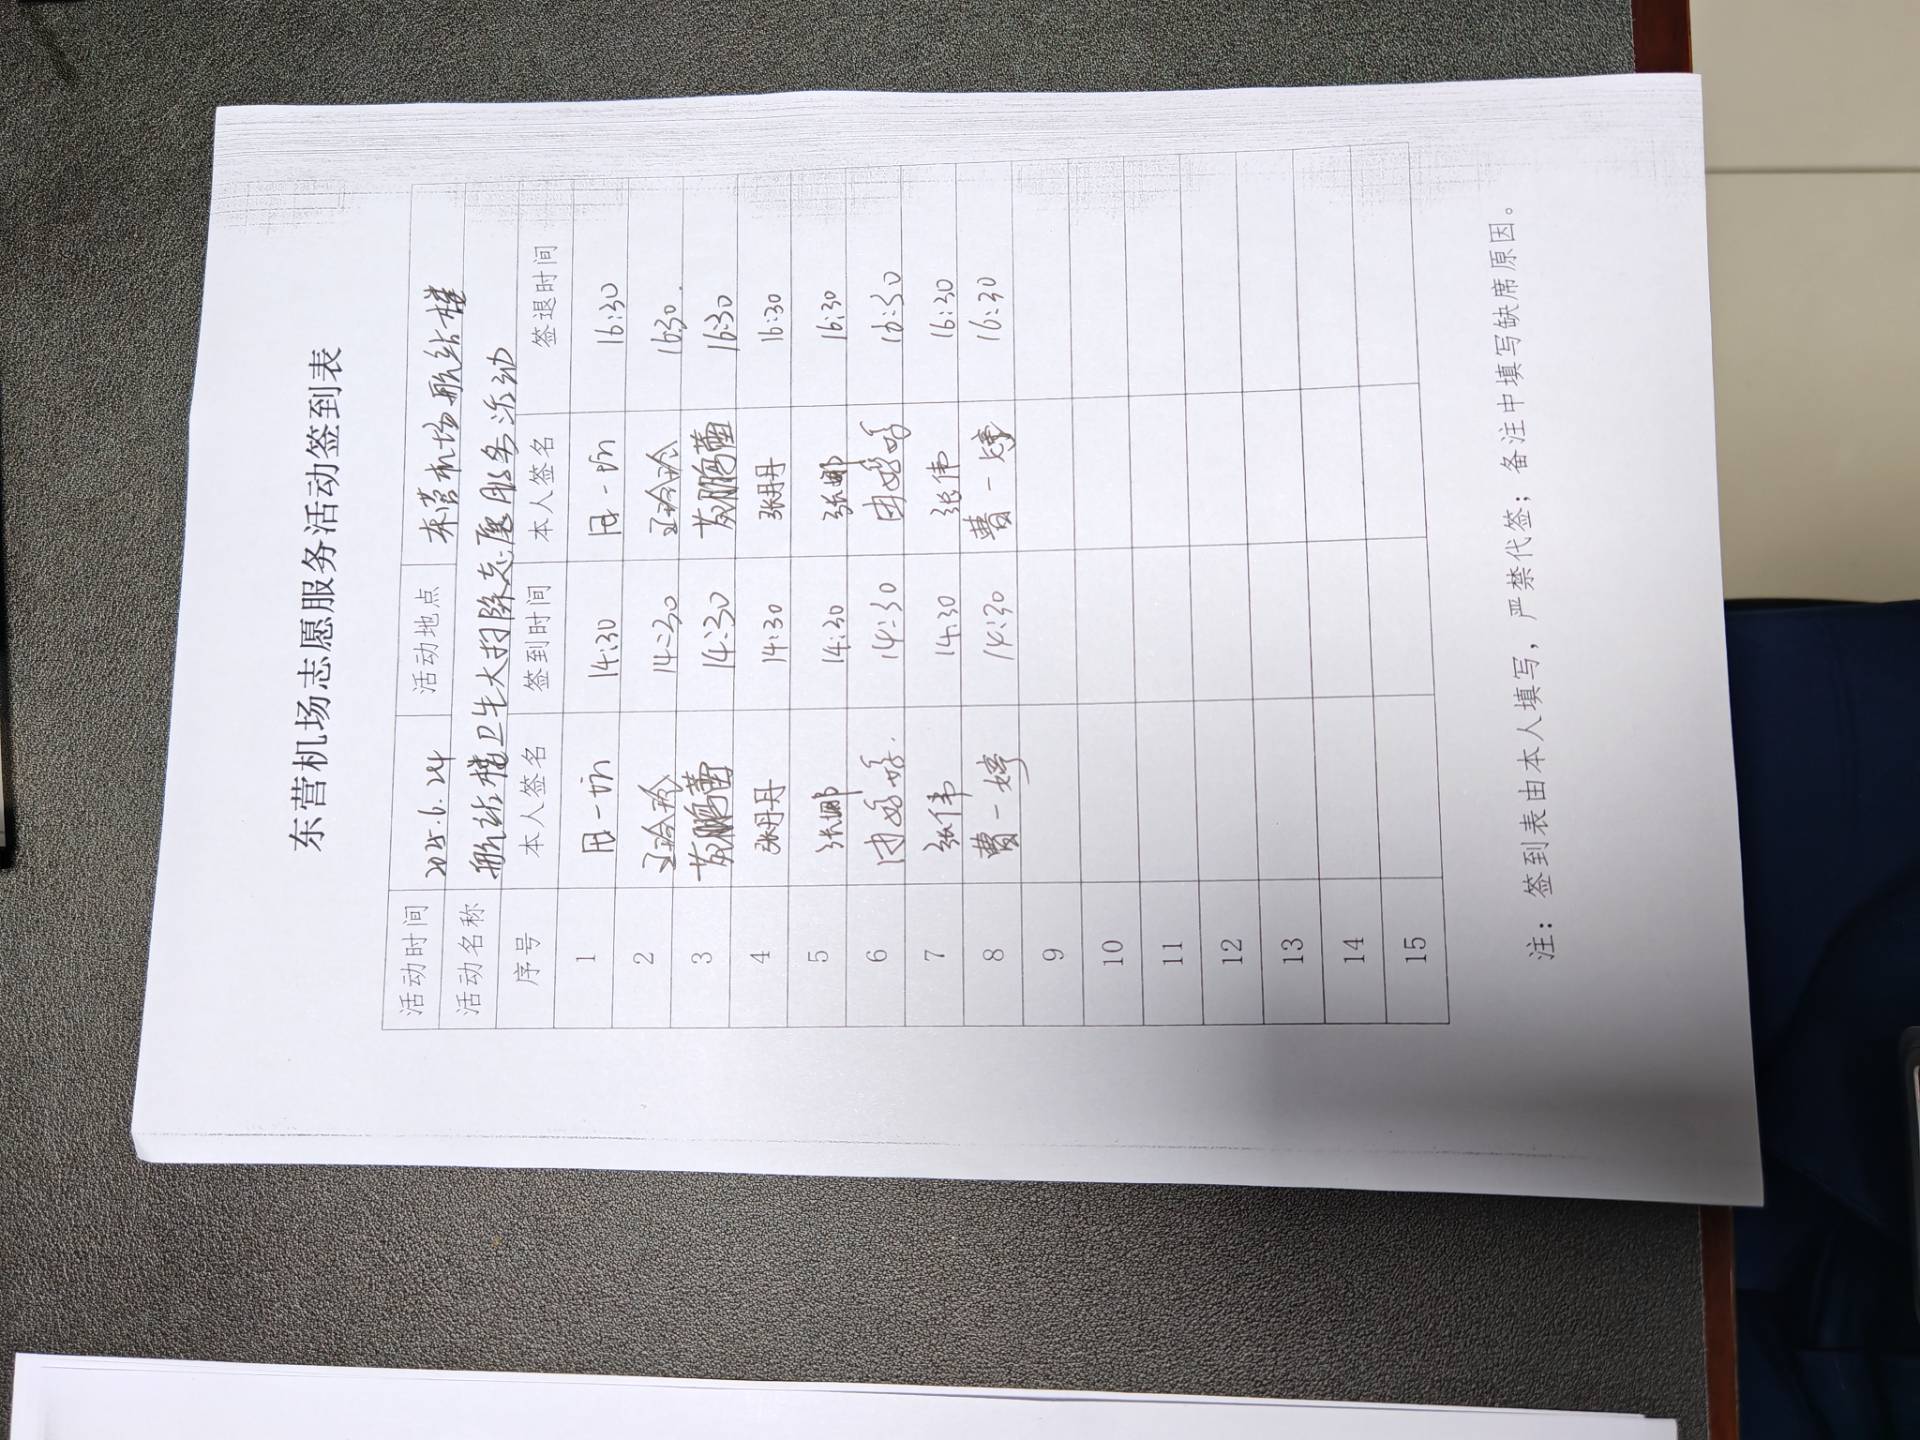 东营机场志愿服务活动签到表
活动时间 2025.6.24 活动地点 东营机场航站楼
活动名称 航站楼卫生大扫除志愿服务活动
序号 本人签名 签到时间 本人签名 签退时间
1 14:30 16:30
2 14:30 16:30
3 14:30 16:30
4 张丹丹 14:30 张丹丹 16:30
5 张娜 14:30 张娜 16:30
6 14:30 16:30
7 张伟 14:30 张伟 16:30
8 曹一婷 14:30 曹一婷 16:30
9
10
11
12
13
14
15
注：签到表由本人填写，严禁代签；备注中填写缺席原因。